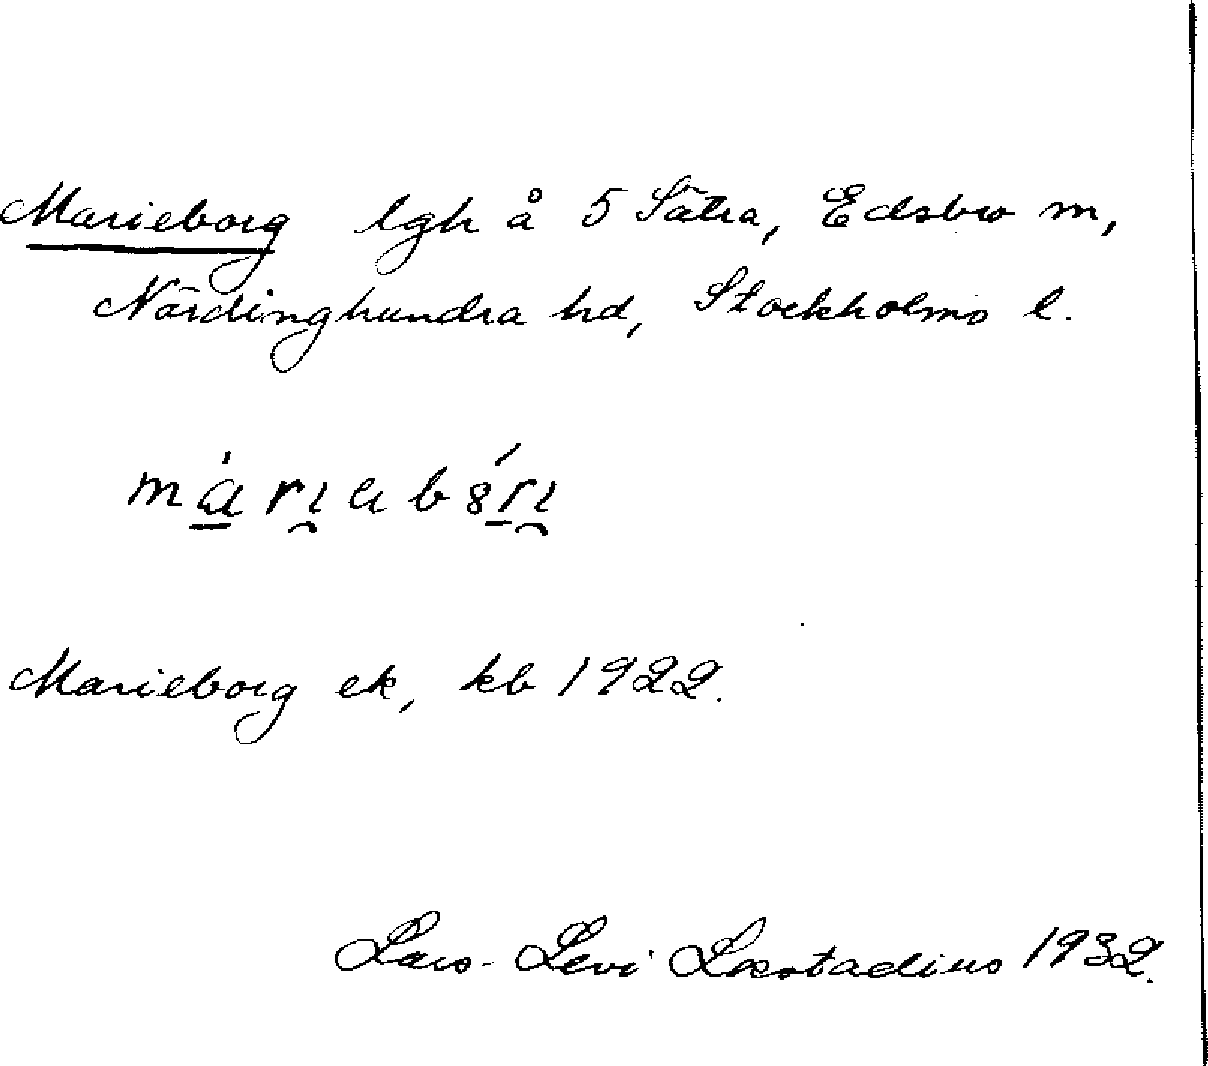 Marieborg lgh å 5 Sätra, Edsbro m,
Närdinghundra hd, Stockholms l.
Marieborg ek, kb 1922.
Lars-Levi Læstadius 1932.